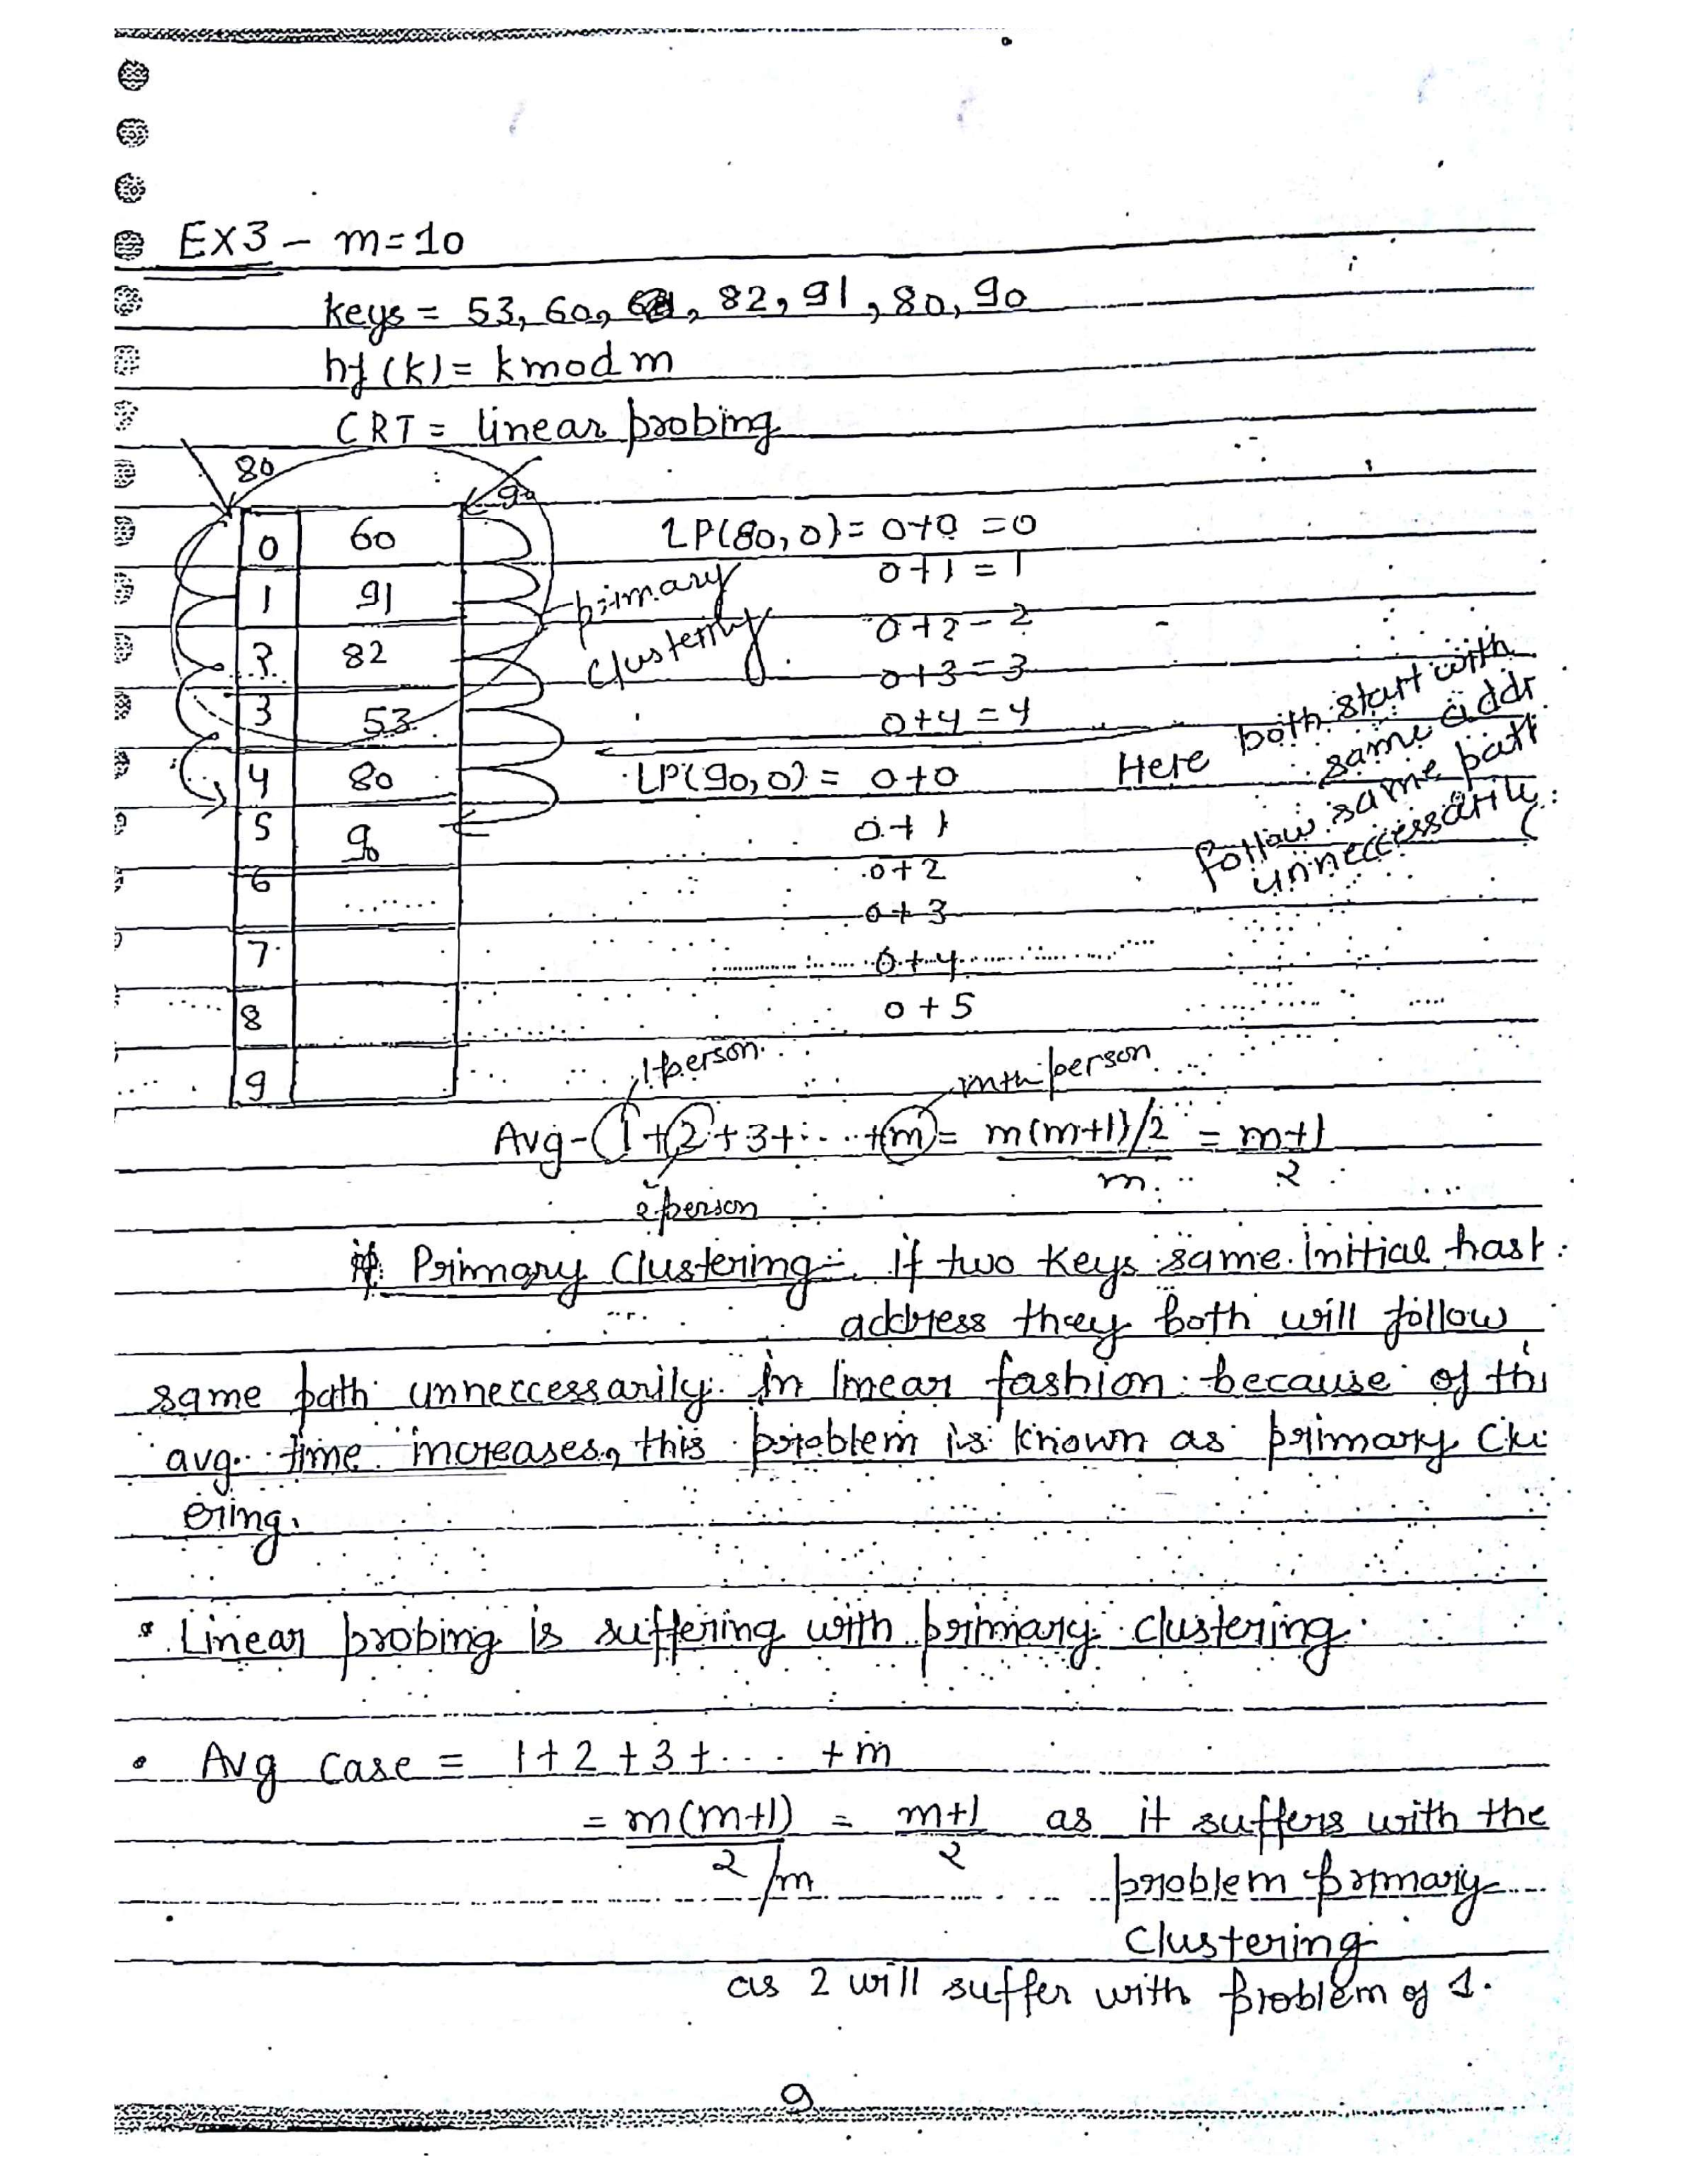 EX3 - m=10
keys = 53, 60, 82, 91, 80, 90
hf(k) = k mod m
CRT = linear probing
80
90
0 60
1 91
2 82
3 53
4 80
5 90
6
7
8
9
primary
clustering
LP(80,0) = 0+0 = 0
0+1 = 1
0+2 = 2
0+3 = 3
0+4 = 4
LP(90,0) = 0+0
0+1
0+2
0+3
0+4
0+5
Here both start with
same addr
follow same path
unneccessarily
1person
mth person
Avg - (1+2+3+....+m) = m(m+1)/2 / m = m+1 / 2
2person
Primary Clustering - if two keys same initial hash
address they both will follow
same path unneccessarily in linear fashion because of this
avg time increases, this problem is known as primary clu
ering.
* Linear probing is suffering with primary clustering.
• Avg case = 1+2+3+.... +m
= m(m+1) / 2 /m = m+1 / 2 as it suffers with the
problem primary
clustering
as 2 will suffer with problem of 1.
9